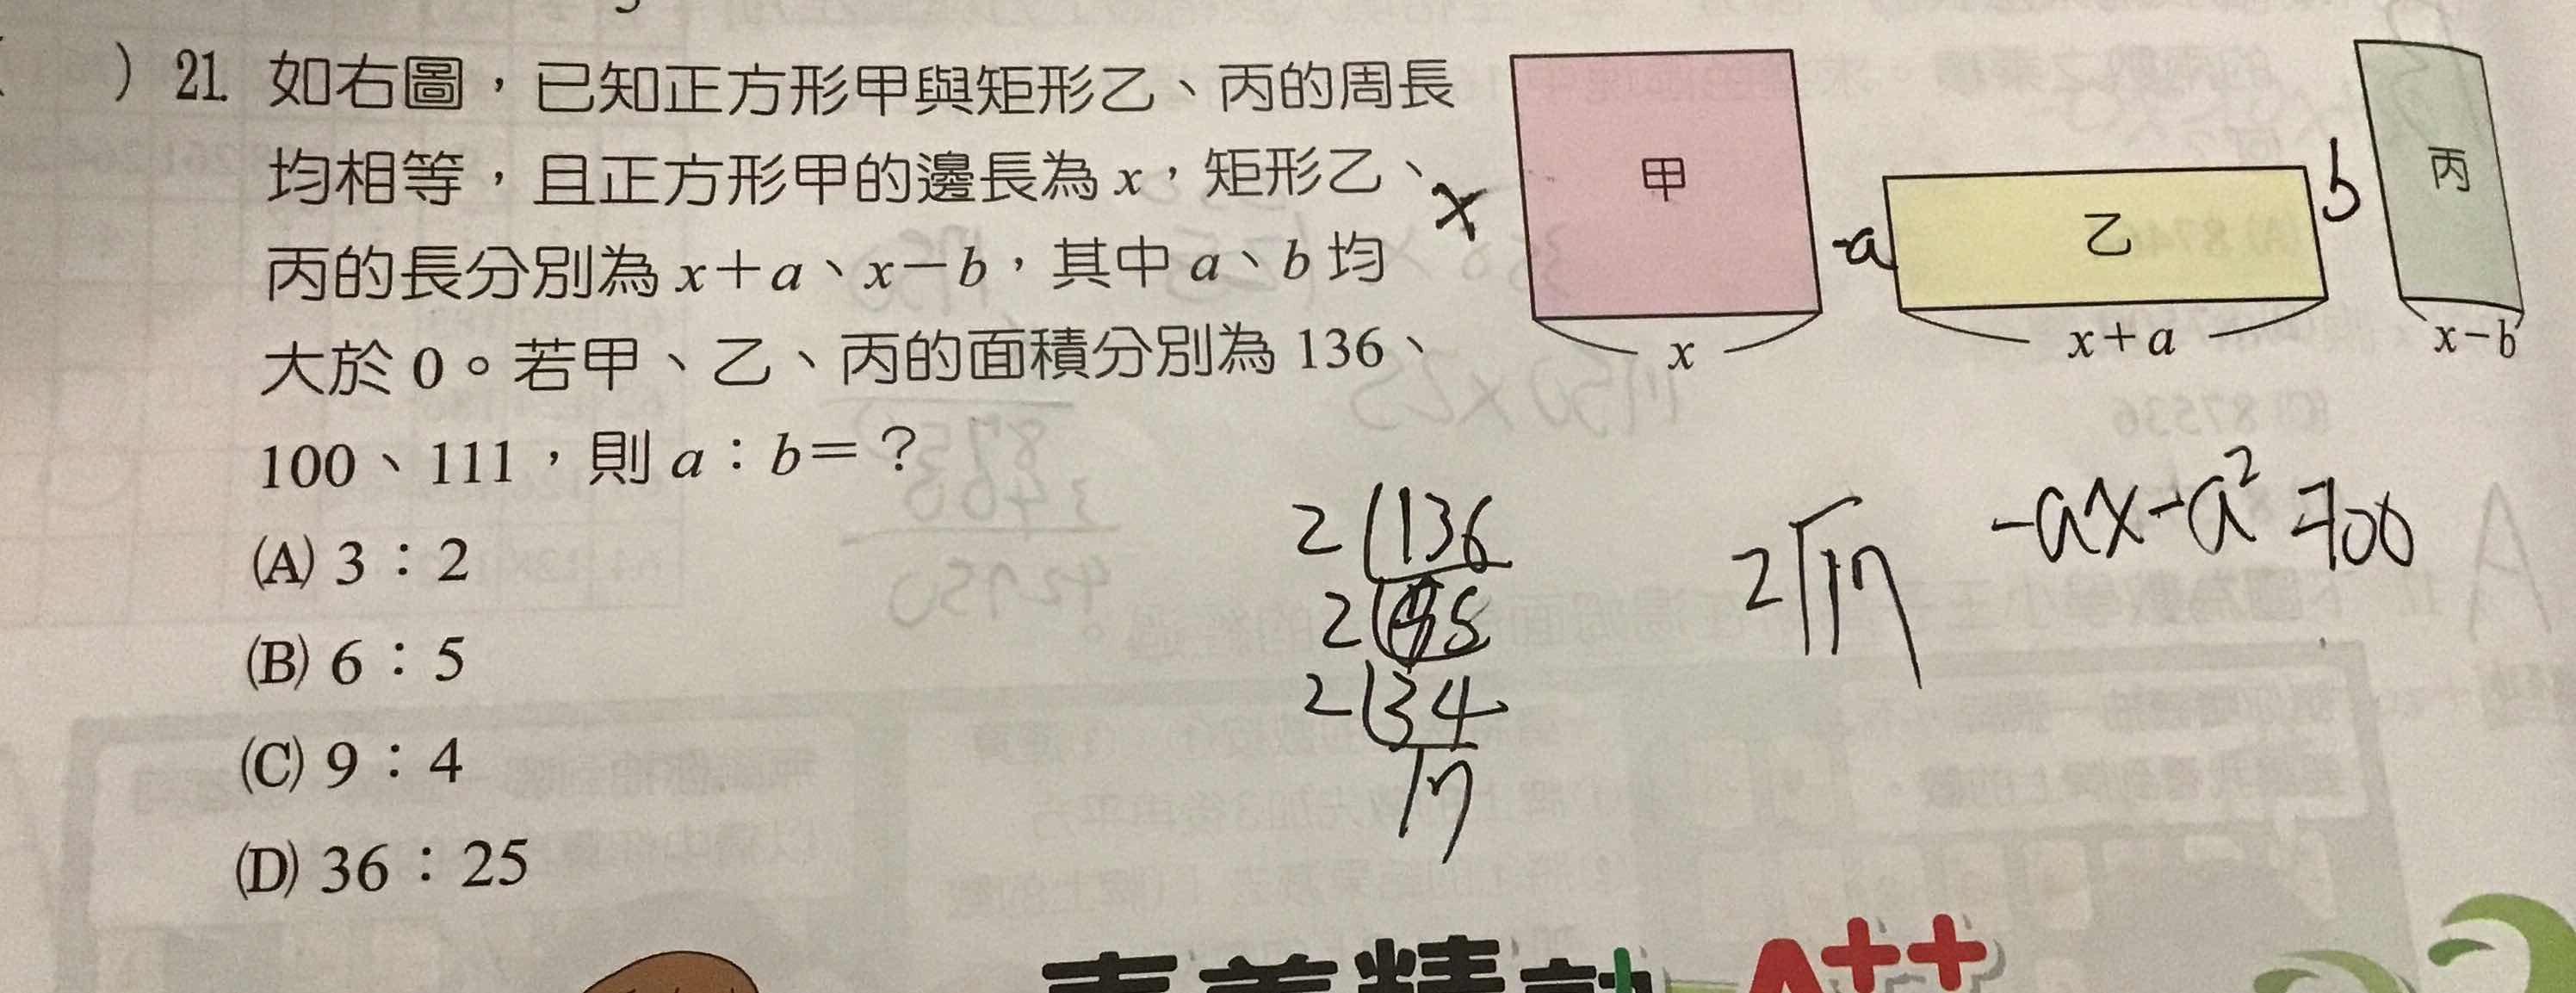 ) 21. 如右圖，已知正方形甲與矩形乙、丙的周長
均相等，且正方形甲的邊長為 x，矩形乙、
丙的長分別為 x＋a、x－b，其中 a、b 均
大於 0。若甲、乙、丙的面積分別為 136、
100、111，則 a：b＝？
(A) 3：2
(B) 6：5
(C) 9：4
(D) 36：25
甲
乙
丙
x
-a
b
x
x+a
x-b
2 136
2 68
2 34
17
2 17
-ax-a² =100
A++